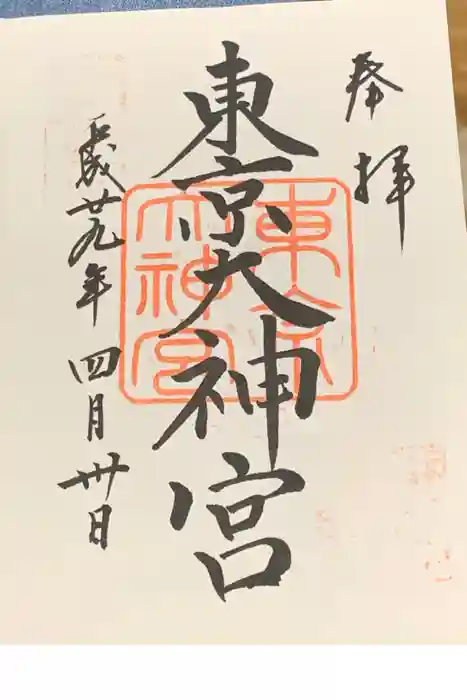 奉拝
東京大神宮
東京大神宮
平成廿九年四月卅日